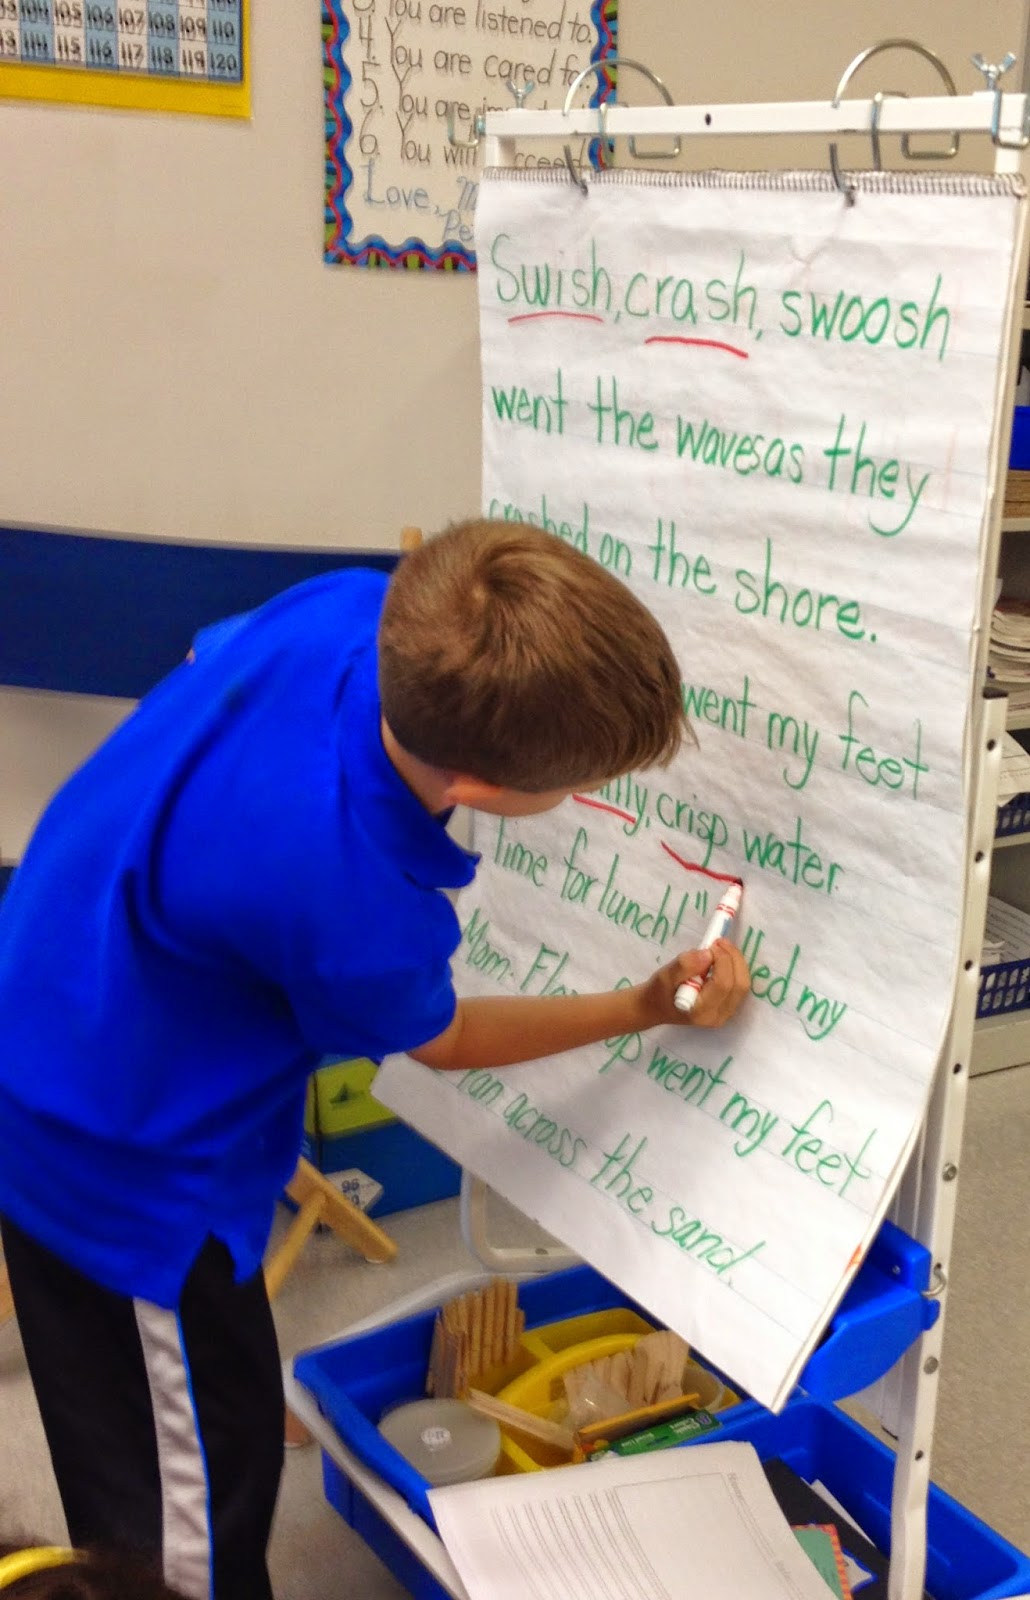 104 105 106 107 108 109 110
114 115 116 117 118 119 120
You are listened to.
4. You are cared for.
5. You are
6. You will succeed
Love,
Swish, crash, swoosh
went the waves as they
crashed on the shore.
went my feet
crisp water.
time for lunch!" my
Mom.
went my feet
ran across the sand.